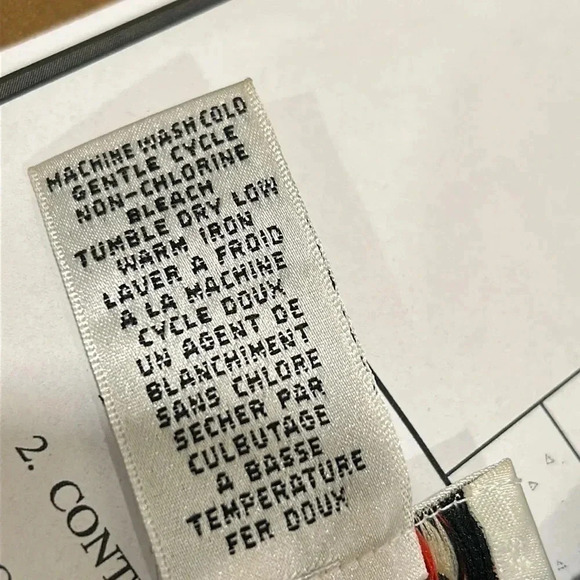 MACHINE WASH COLD
GENTLE CYCLE
NON-CHLORINE
BLEACH
TUMBLE DRY LOW
WARM IRON
LAVER A FROID
A LA MACHINE
CYCLE DOUX
UN AGENT DE
BLANCHIMENT
SANS CHLORE
SECHER PAR
CULBUTAGE
A BASSE
TEMPERATURE
FER DOUX
2. CONT